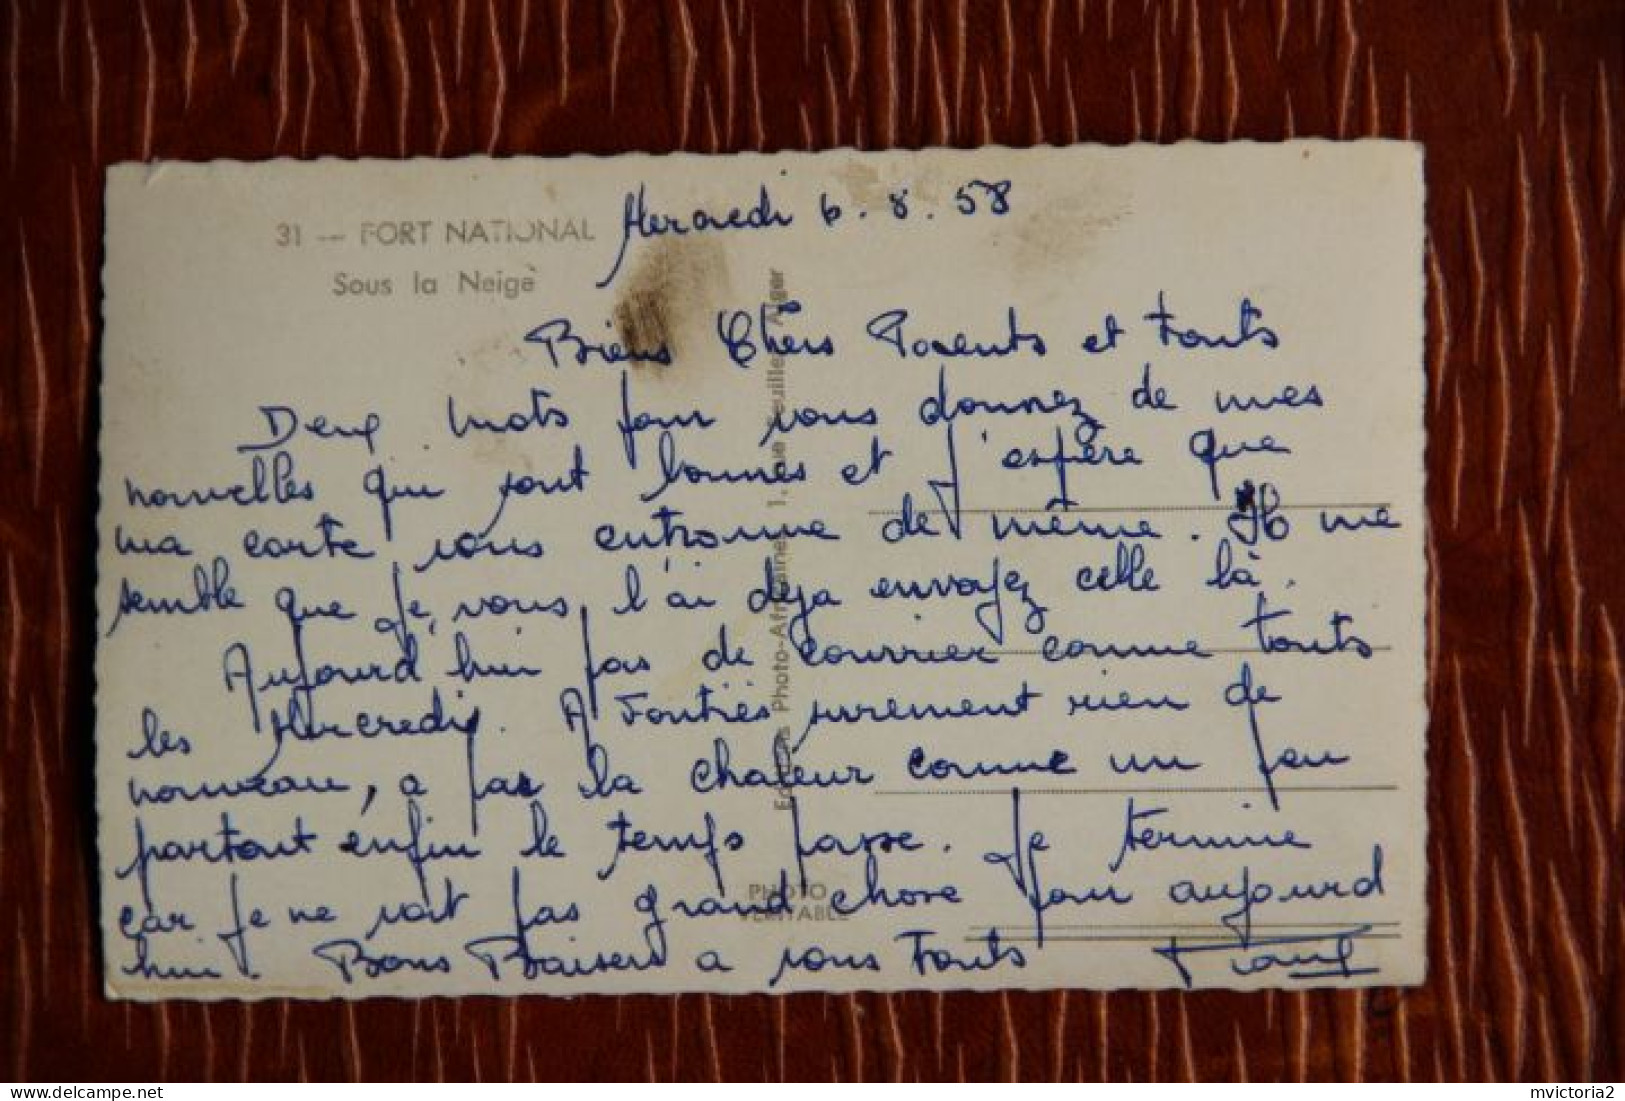 31 — FORT NATIONAL
Sous la Neige
Mercredi 6.8.58
Biens Chers Parents et touts
Deux mots pour vous donnez de mes
nouvelles qui sont bonnes et j'espère que
ma carte vous entrouve de même. Il me
semble que je vous l'ai deja envoyez celle là.
Aujourd'hui pas de courrier comme touts
les Mercredis. A surement rien de
nouveau, a pas la chaleur comme un peu
partout enfin le temps passe. Je termine
car je ne voit pas grand chose pour aujourd
hui. Bons Baisers a vous touts
Photo-Africaines, 1, Alger
PHOTO
VERITABLE
mvictoria2